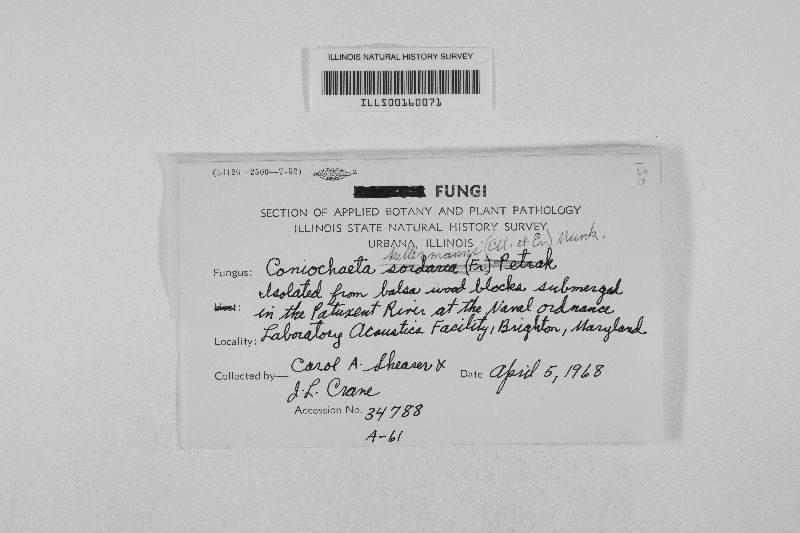 ILLINOIS NATURAL HISTORY SURVEY
ILLS00160071
(54126—2500—7-52) 2
FUNGI
SECTION OF APPLIED BOTANY AND PLANT PATHOLOGY
ILLINOIS STATE NATURAL HISTORY SURVEY
URBANA, ILLINOIS
kellermanni (Ell. et Ev.) Munk.
Fungus: Coniochaeta sordaria (Fr.) Petrak
Host: Isolated from balsa wood blocks submerged
in the Patuxent River at the Naval ordnance
Locality: Laboratory Acoustics Facility, Brighton, Maryland
Collected by— Carol A. Shearer & Date April 5, 1968
J.L. Crane
Accession No. 34788
A-61